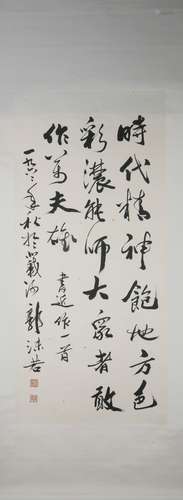 時代精神飽地方色
彩濃能師大衆者敢
作萬夫雄
書近作一首
一九六二年秋於
郭沫若